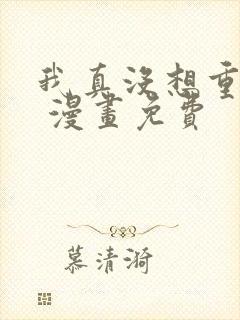 我真没想重
漫畫免費
慕清漪